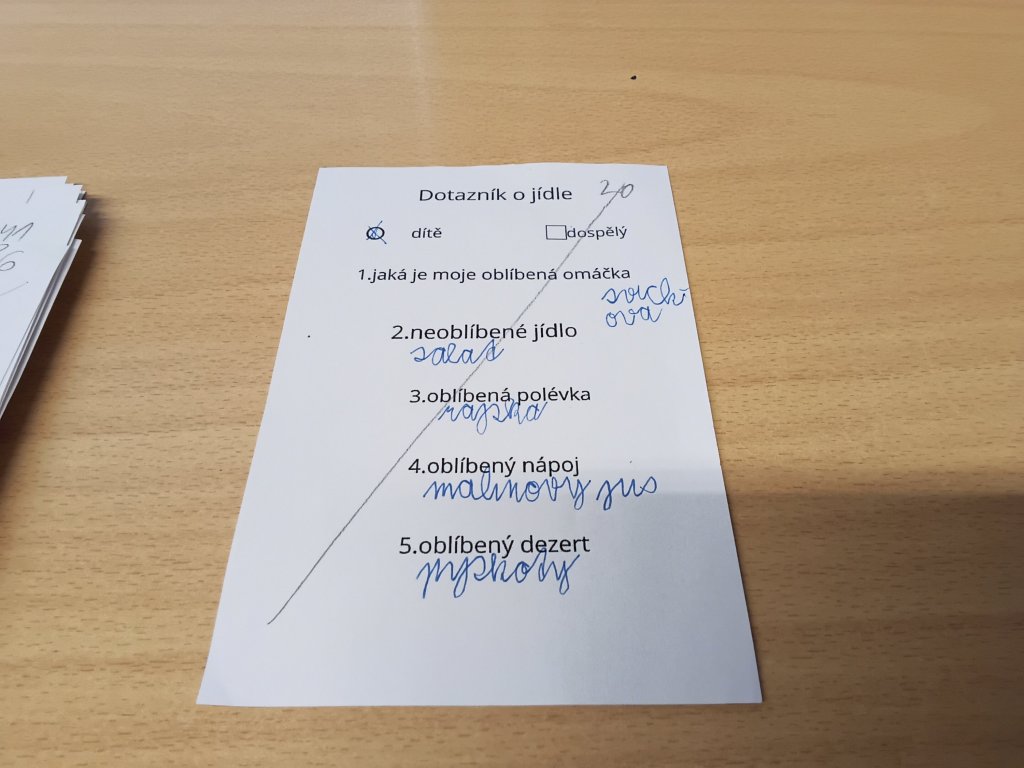 Dotazník o jídle 20
dítě dospělý
1.jaká je moje oblíbená omáčka
svičk
ova
2.neoblíbené jídlo
salat
3.oblíbená polévka
rajska
4.oblíbený nápoj
malinový jus
5.oblíbený dezert
pyškoty